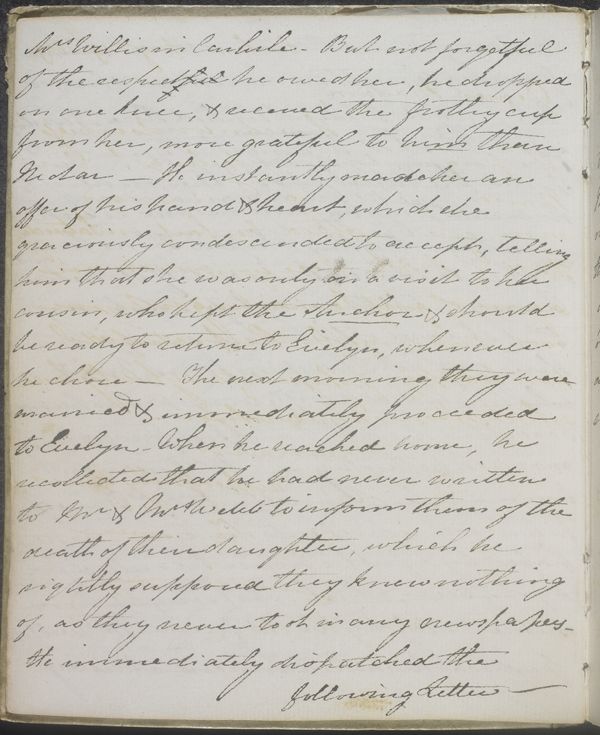 Mrs Willis in Carlile - But not forgetful
of the respectful he owed her, he dropped
on one knee, & received the frothy cup
from her, more grateful to him than
Nectar — He instantly made her an
offer of his hand & heart, which she
graciously condescended to accept, telling
him that she was only on a visit to her
cousin, who kept the Anchor, & should
be ready to return to Evelyn, whenever
he chose — The next morning they were
married & immediately proceeded
to Evelyn - When he reached home, he
recollected that he had never written
to Mr & Mrs Webb to inform them of the
death of their daughter, which he
rightly supposed they knew nothing
of, as they never took in any newspapers -
He immediately dispatched the
following Letter —